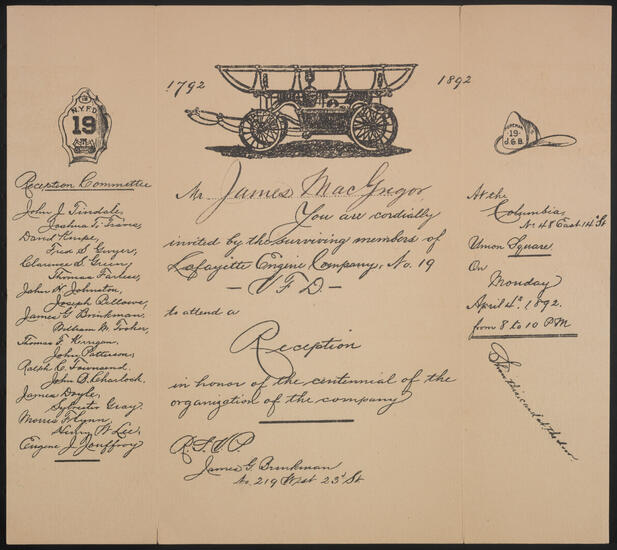 1792
1892
19
N.Y.F.D
19
FOREMAN
19
J.G.B.
Reception Committee
John J. Tindale,
Joshua T. Travis,
David Knipe,
Fred S. Gwyer,
Clarence S. Green,
Thomas Farless,
John H. Johnston,
Joseph Pellowe,
James G. Brinkman,
William M. Tooker,
Thomas F. Kerrigan,
John Patterson,
Ralph C. Townsend,
John B. Charlock,
James Doyle,
Sylvester Gray.
Morris Flynn,
Henry W. Lee,
Eugene J. Jouffroy
Mr James MacGrigor
You are cordially
invited by the surviving members of
Lafayette Engine Company, No. 19
— V F D —
to attend a
Reception
in honor of the centennial of the
organization of the company
R.S.V.P.
James G. Brinkman
No. 219 West 23d St
At the
Columbia,
No 48 East 14th St
Union Square
On
Monday
April 4th, 1892.
from 8 to 10 PM
Show this card at the door.